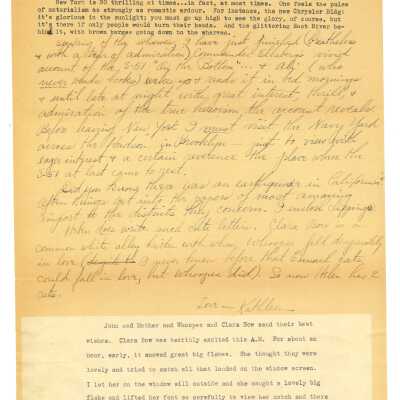 New York is SO thrilling at times...in fact, at most times. One feels the pulse
of materialism as strongly as romantic ardour. For instance, the new Chrysler Bldg:
it's glorious in the sunlight; you must go up high to see the glory, of course, but
it's there if only people would turn their heads. And the glittering East River be-
hind it, with brown barges going down to the wharves.
Speaking of the wharves, I have just finished (breathless
& with a tear of admiration) Commander Ellsberg's vivid
account of the S-51 "On the Bottom"... & Abj (who
never reads books) & made it in bed mornings
& until late at night with great interest thrills &
admiration of the true heroism the account reveals
Before leaving New York I must visit the Navy Yard
across the in Brooklyn - just to view with
eager interest & a certain reverence the place where the
S-51 at last came to rest.
Did you there was an earthquake in California?
often things get into the papers of most amazing
import to the districts they concern. I enclose clippings.
John does write such cute letters. Clara Bow is a
common white alley kitten with whom Whoopee fell desperately
in love ( I never knew before that tomcats
could fall in love, but Whoopee did). So now Helen has 2
cats.
Love - Kathleen
John and Mother and Whoopee and Clara Bow send their best
wishes. Clara Bow was terribly excited this A.M. For about an
hour, early, it snowed great big flakes. She thought they were
lovely and tried to catch all that landed on the window screen.
I let her on the window sill outside and she caught a lovely big
flake and lifted her foot so carefully to view her catch and there